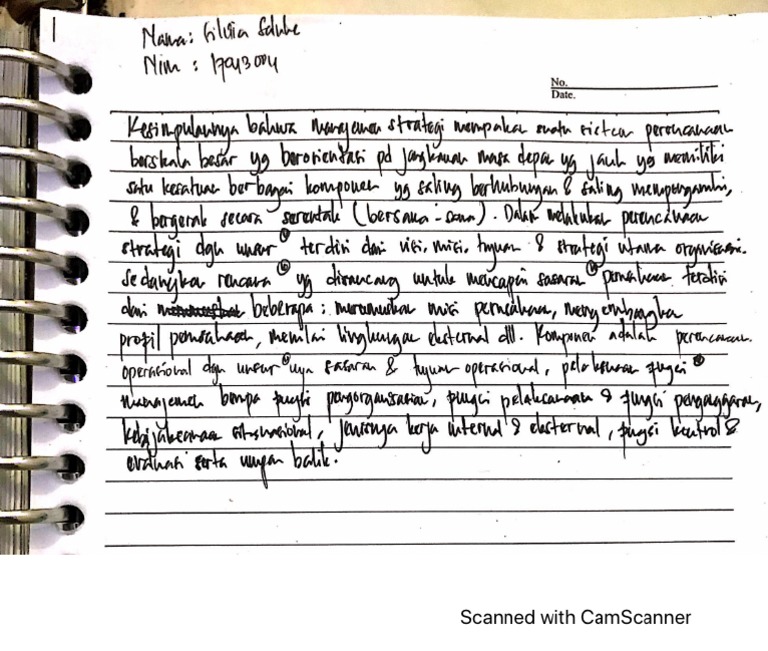 1
Nama:
Nim :
No.
Date.
Kesimpulannya bahwa manajemen strategi merupakan suatu sistem perencanaan
berskala besar yg berorientasi pd jangkauan masa depan yg jauh yg memiliki
satu kesatuan berbagai komponen yg saling berhubungan & saling mempengaruhi,
& bergerak secara serentak (bersama-sama). Dalam melakukan perencanaan
strategi dgn unsur² terdiri dari visi, misi, tujuan & strategi utama organisasi.
Sedangkan rencana² yg dirancang untuk mencapai sasaran² perusahaan terdiri
dari beberapa : merumuskan misi perusahaan, mengembangkan
profil perusahaan, menilai lingkungan eksternal dll. Komponen adalah perencanaan
operasional dgn unsur²nya sasaran & tujuan operasional, pelaksanaan fungsi²
manajemen berupa fungsi pengorganisasian, fungsi pelaksanaan & fungsi penganggaran,
kebijaksanaan situasional, kerja internal & eksternal, fungsi kontrol &
evaluasi serta umpan balik.
Scanned with CamScanner